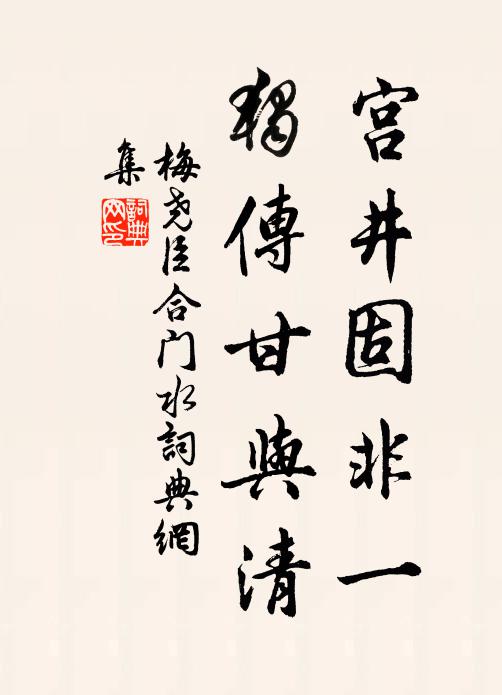 宮井固非一
獨傳甘與清
梅尧臣合门水詞典網
集
詞典
网印